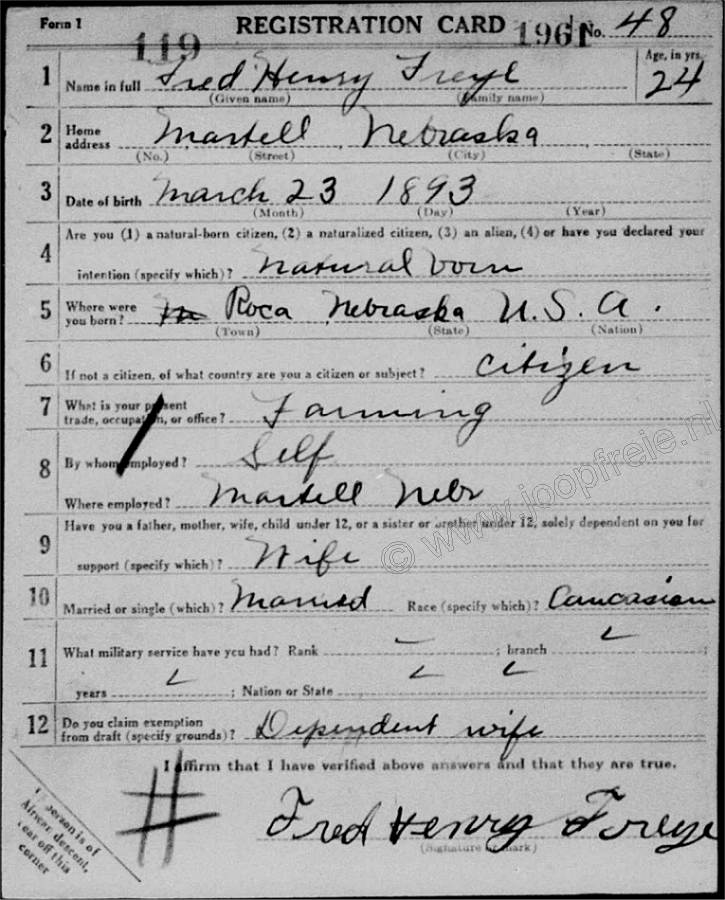 Form 1 REGISTRATION CARD No. 48
119 1961
1 Name in full Fred Henry Freye Age, in yrs. 24
(Given name) (Family name)
2 Home address Martell Nebraska
(No.) (Street) (City) (State)
3 Date of birth March 23 1893
(Month) (Day) (Year)
4 Are you (1) a natural-born citizen, (2) a naturalized citizen, (3) an alien, (4) or have you declared your
intention (specify which)? Natural born
5 Where were you born? Roca Nebraska U.S.A.
(Town) (State) (Nation)
6 If not a citizen, of what country are you a citizen or subject? Citizen
7 What is your present
trade, occupation, or office? Farming
8 By whom employed? Self
Where employed? Martell Nebr
9 Have you a father, mother, wife, child under 12, or a sister or brother under 12, solely dependent on you for
support (specify which)? Wife
10 Married or single (which)? Married Race (specify which)? Caucasian
11 What military service have you had? Rank ; branch
years ; Nation or State
12 Do you claim exemption
from draft (specify grounds)? Dependent wife
I affirm that I have verified above answers and that they are true.
Fred Henry Freye
(Signature or mark)
person is of
African descent,
tear off this
corner
© www.joopfreie.nl